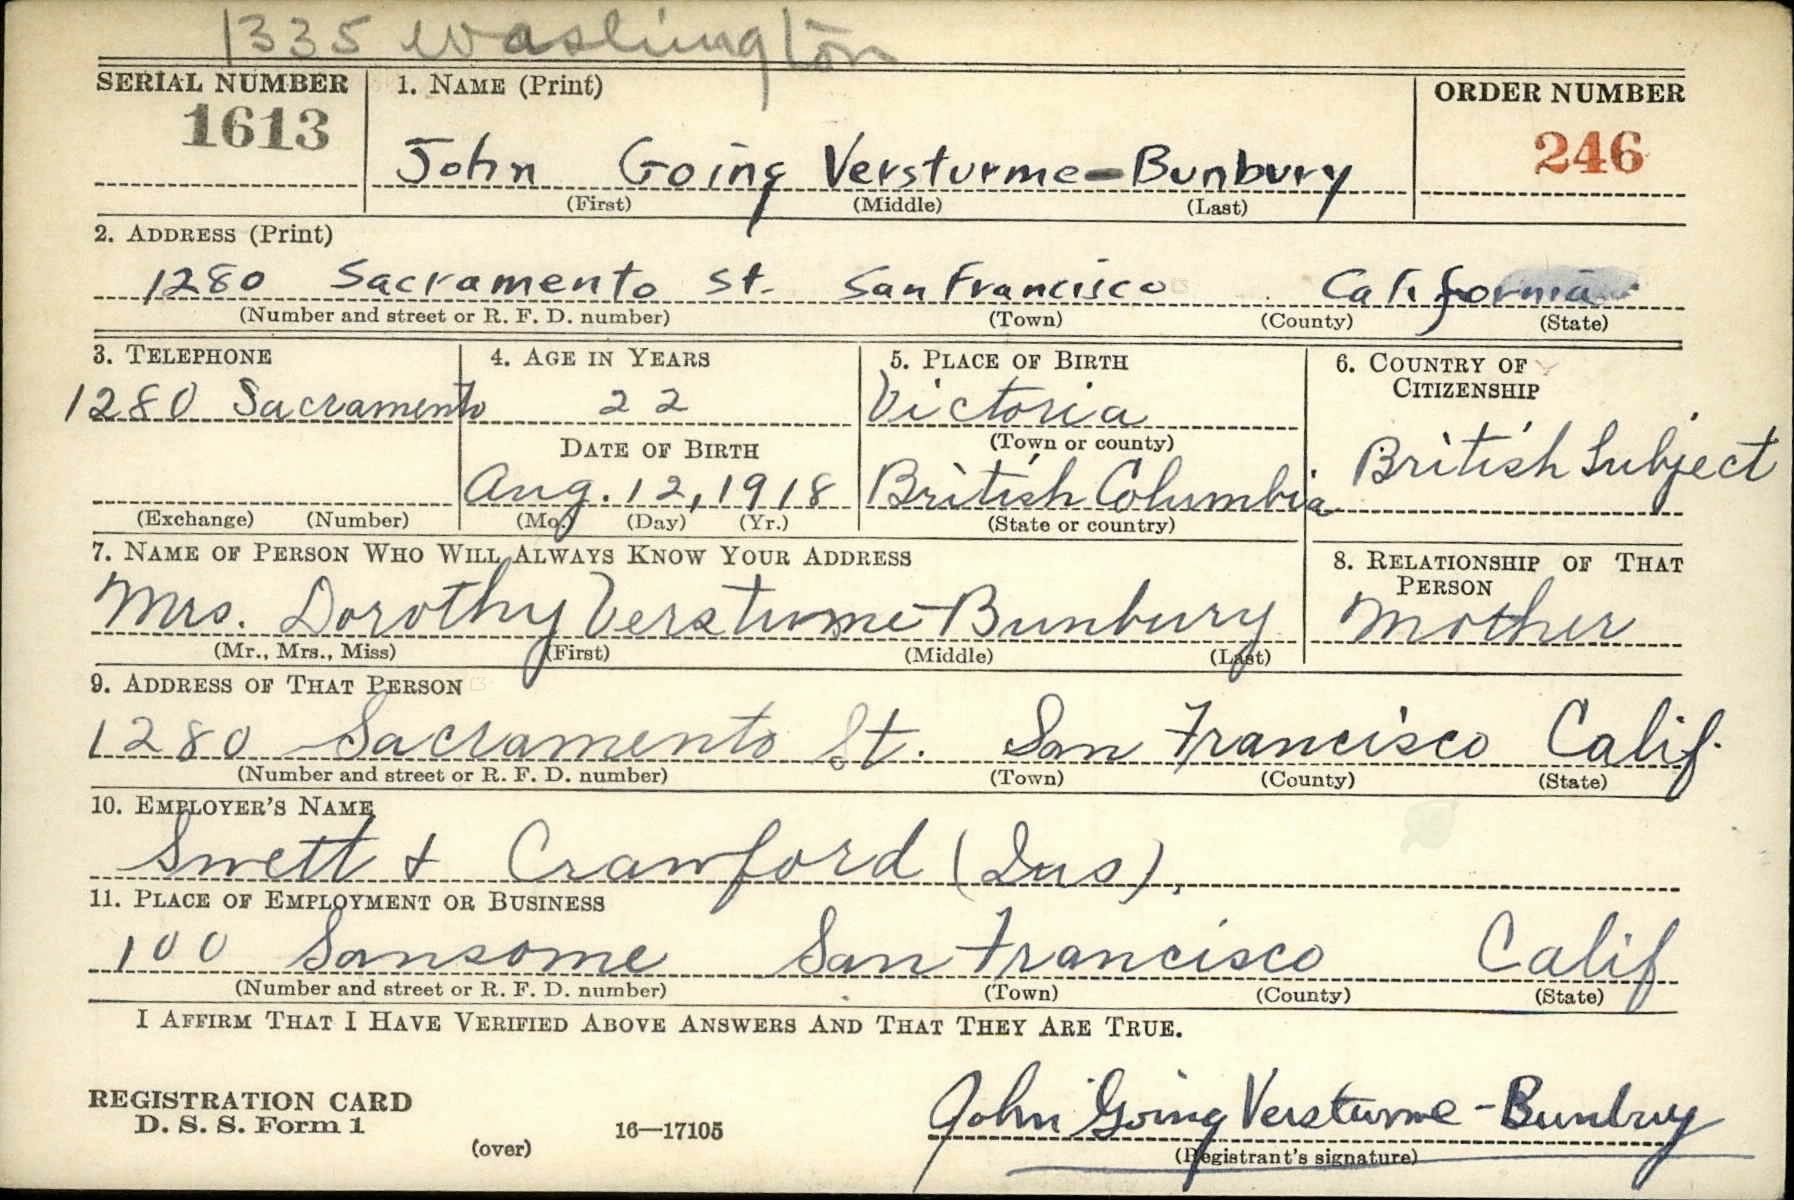 1335 Washington
SERIAL NUMBER 1. NAME (Print) ORDER NUMBER
1613 John Going Versturme-Bunbury 246
(First) (Middle) (Last)
2. ADDRESS (Print)
1280 Sacramento St. San Francisco California
(Number and street or R. F. D. number) (Town) (County) (State)
3. TELEPHONE 4. AGE IN YEARS 5. PLACE OF BIRTH 6. COUNTRY OF CITIZENSHIP
1280 Sacramento 22 Victoria
(Town or county)
DATE OF BIRTH British Subject
Aug. 12, 1918 British Columbia
(Exchange) (Number) (Mo.) (Day) (Yr.) (State or country)
7. NAME OF PERSON WHO WILL ALWAYS KNOW YOUR ADDRESS 8. RELATIONSHIP OF THAT PERSON
Mrs. Dorothy Versturme-Bunbury Mother
(Mr., Mrs., Miss) (First) (Middle) (Last)
9. ADDRESS OF THAT PERSON
1280 Sacramento St. San Francisco Calif.
(Number and street or R. F. D. number) (Town) (County) (State)
10. EMPLOYER'S NAME
Swett & Crawford (Ins).
11. PLACE OF EMPLOYMENT OR BUSINESS
100 Sansome San Francisco Calif
(Number and street or R. F. D. number) (Town) (County) (State)
I AFFIRM THAT I HAVE VERIFIED ABOVE ANSWERS AND THAT THEY ARE TRUE.
REGISTRATION CARD
D. S. S. Form 1 John Going Versturme-Bunbury
(over) 16—17105 (Registrant's signature)